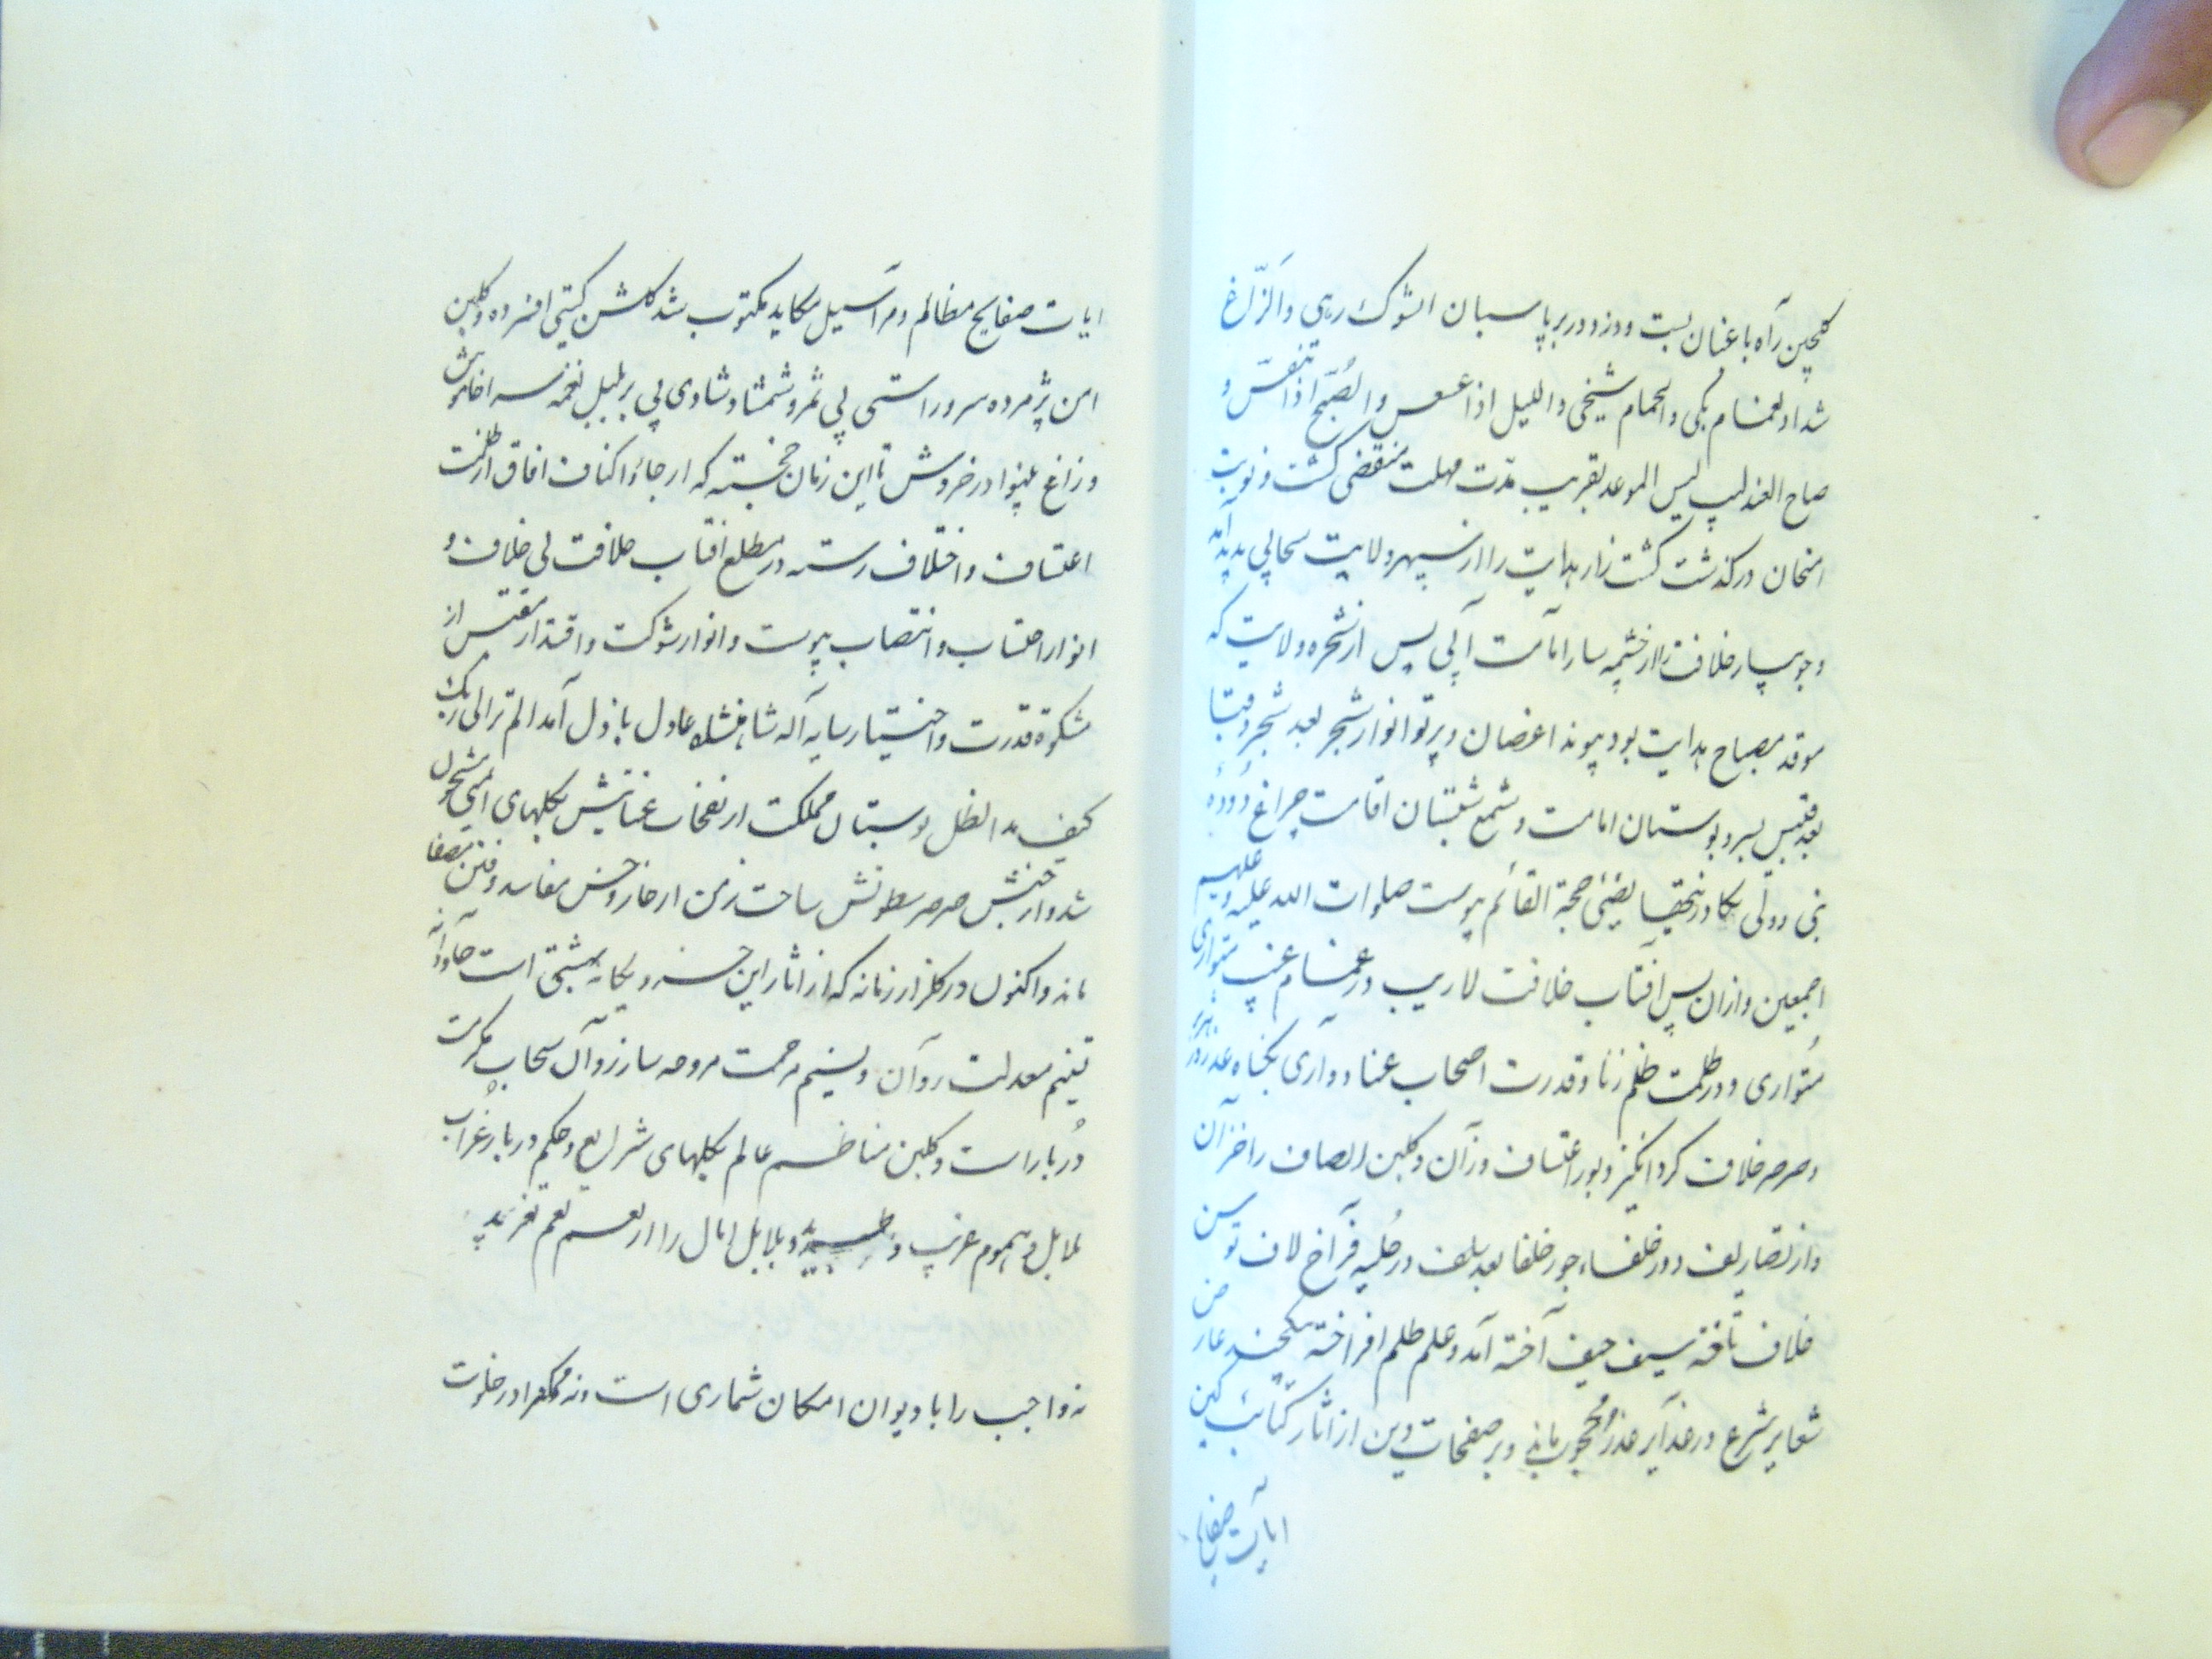 گلچین راه باغبان بست و دزد در بر پاسبان الشوک رهی والزاغ
شدا و الغمام بکی والحمام شیخی واللیل اذا عسعس والصبح اذا تنفس و
صاح العندلیب لیس الموعد بقریب مدت مهلت منقضی کشت و نوبت
امتحان درکذشت کشت زار هدایت را از سپهر ولایت سحابی پدید آمد
و جویبار خلافت را از خشمه سار امامت آبی پس از شجره ولایت که
موقد مصباح هدایت بود پیوند اغصان و پرتو انوار شجر بعد شجر و قبسا
بعد قبس بسرو بوستان امامت و شمع شبستان اقامت چراغ دوده
نبی و ولی یکاد زیتها یضیئ حجة القائم پیوست صلوات الله علیه و علیهم
اجمعین و ازان پس آفتاب خلافت لاریب در غمام غیب متواری
متواری و در ظلمت ظلم زنا و قدرت اصحاب عناد و اری بخاه غدر
و صرصر خلافت کرد انکیز و بور اعتساف وزان و کلبن انصاف را خزان
و از تصاریف دور خلفاء جور خلفا بعد سلف در حلبه فراخ لاف توسن
خلاف تاخته سیف حیف آخته آمد و علم ظلم افراخته
شعایر شرع در غدایر غدر محجوب مانی و بر صفحات دین از اثار کتائب کین
ایات صفایح
ایات صفایح مظالم و مراسیل مکاید مکتوب شد کلشن کیتی افسرده و کلبن
امن پژمرده سرو راستی بی ثمر و شمشاد شادی بی بر بلبل نغمه سرا خاموش
و زاغ بینوا در خروش تا این زمان خجسته که ارجاء و اکناف افاق از ظلمت
اعتساف و اختلاف رسته در مطلع افتاب خلافت بی خلاف و
انوار احتساب و انتصاب پیوست و انوار شوکت و اقتدار مقتبس از
مشکوة قدرت و اختیار سایه آله شاهنشاه عادل باذل آمد الم تر الی ربک
کیف مد الظل بوستان مملکت از نفخات عنایتش بکلهای امنی مشحون
شد و از جنبش صرصر سطوتش ساحت زمن از خار و خس مفاسد و فتن مصفا
ماند و اکنون در کلزار زمانه که از اثار این خسرو یکانه بهشتی است جاودانه
تسنیم معدلت روان و نسیم مرحمت مروحه سار زوآن سحاب مکرمت
دربار است و کلبن مناظم عالم بکلهای شرایع و حکم دربار غراب
بلابل و هموم غریب و و بلابل امال را از نعم نغم تغرید
نه واجب را با دیوان امکان شماری است و نه ممکن را در خلوت